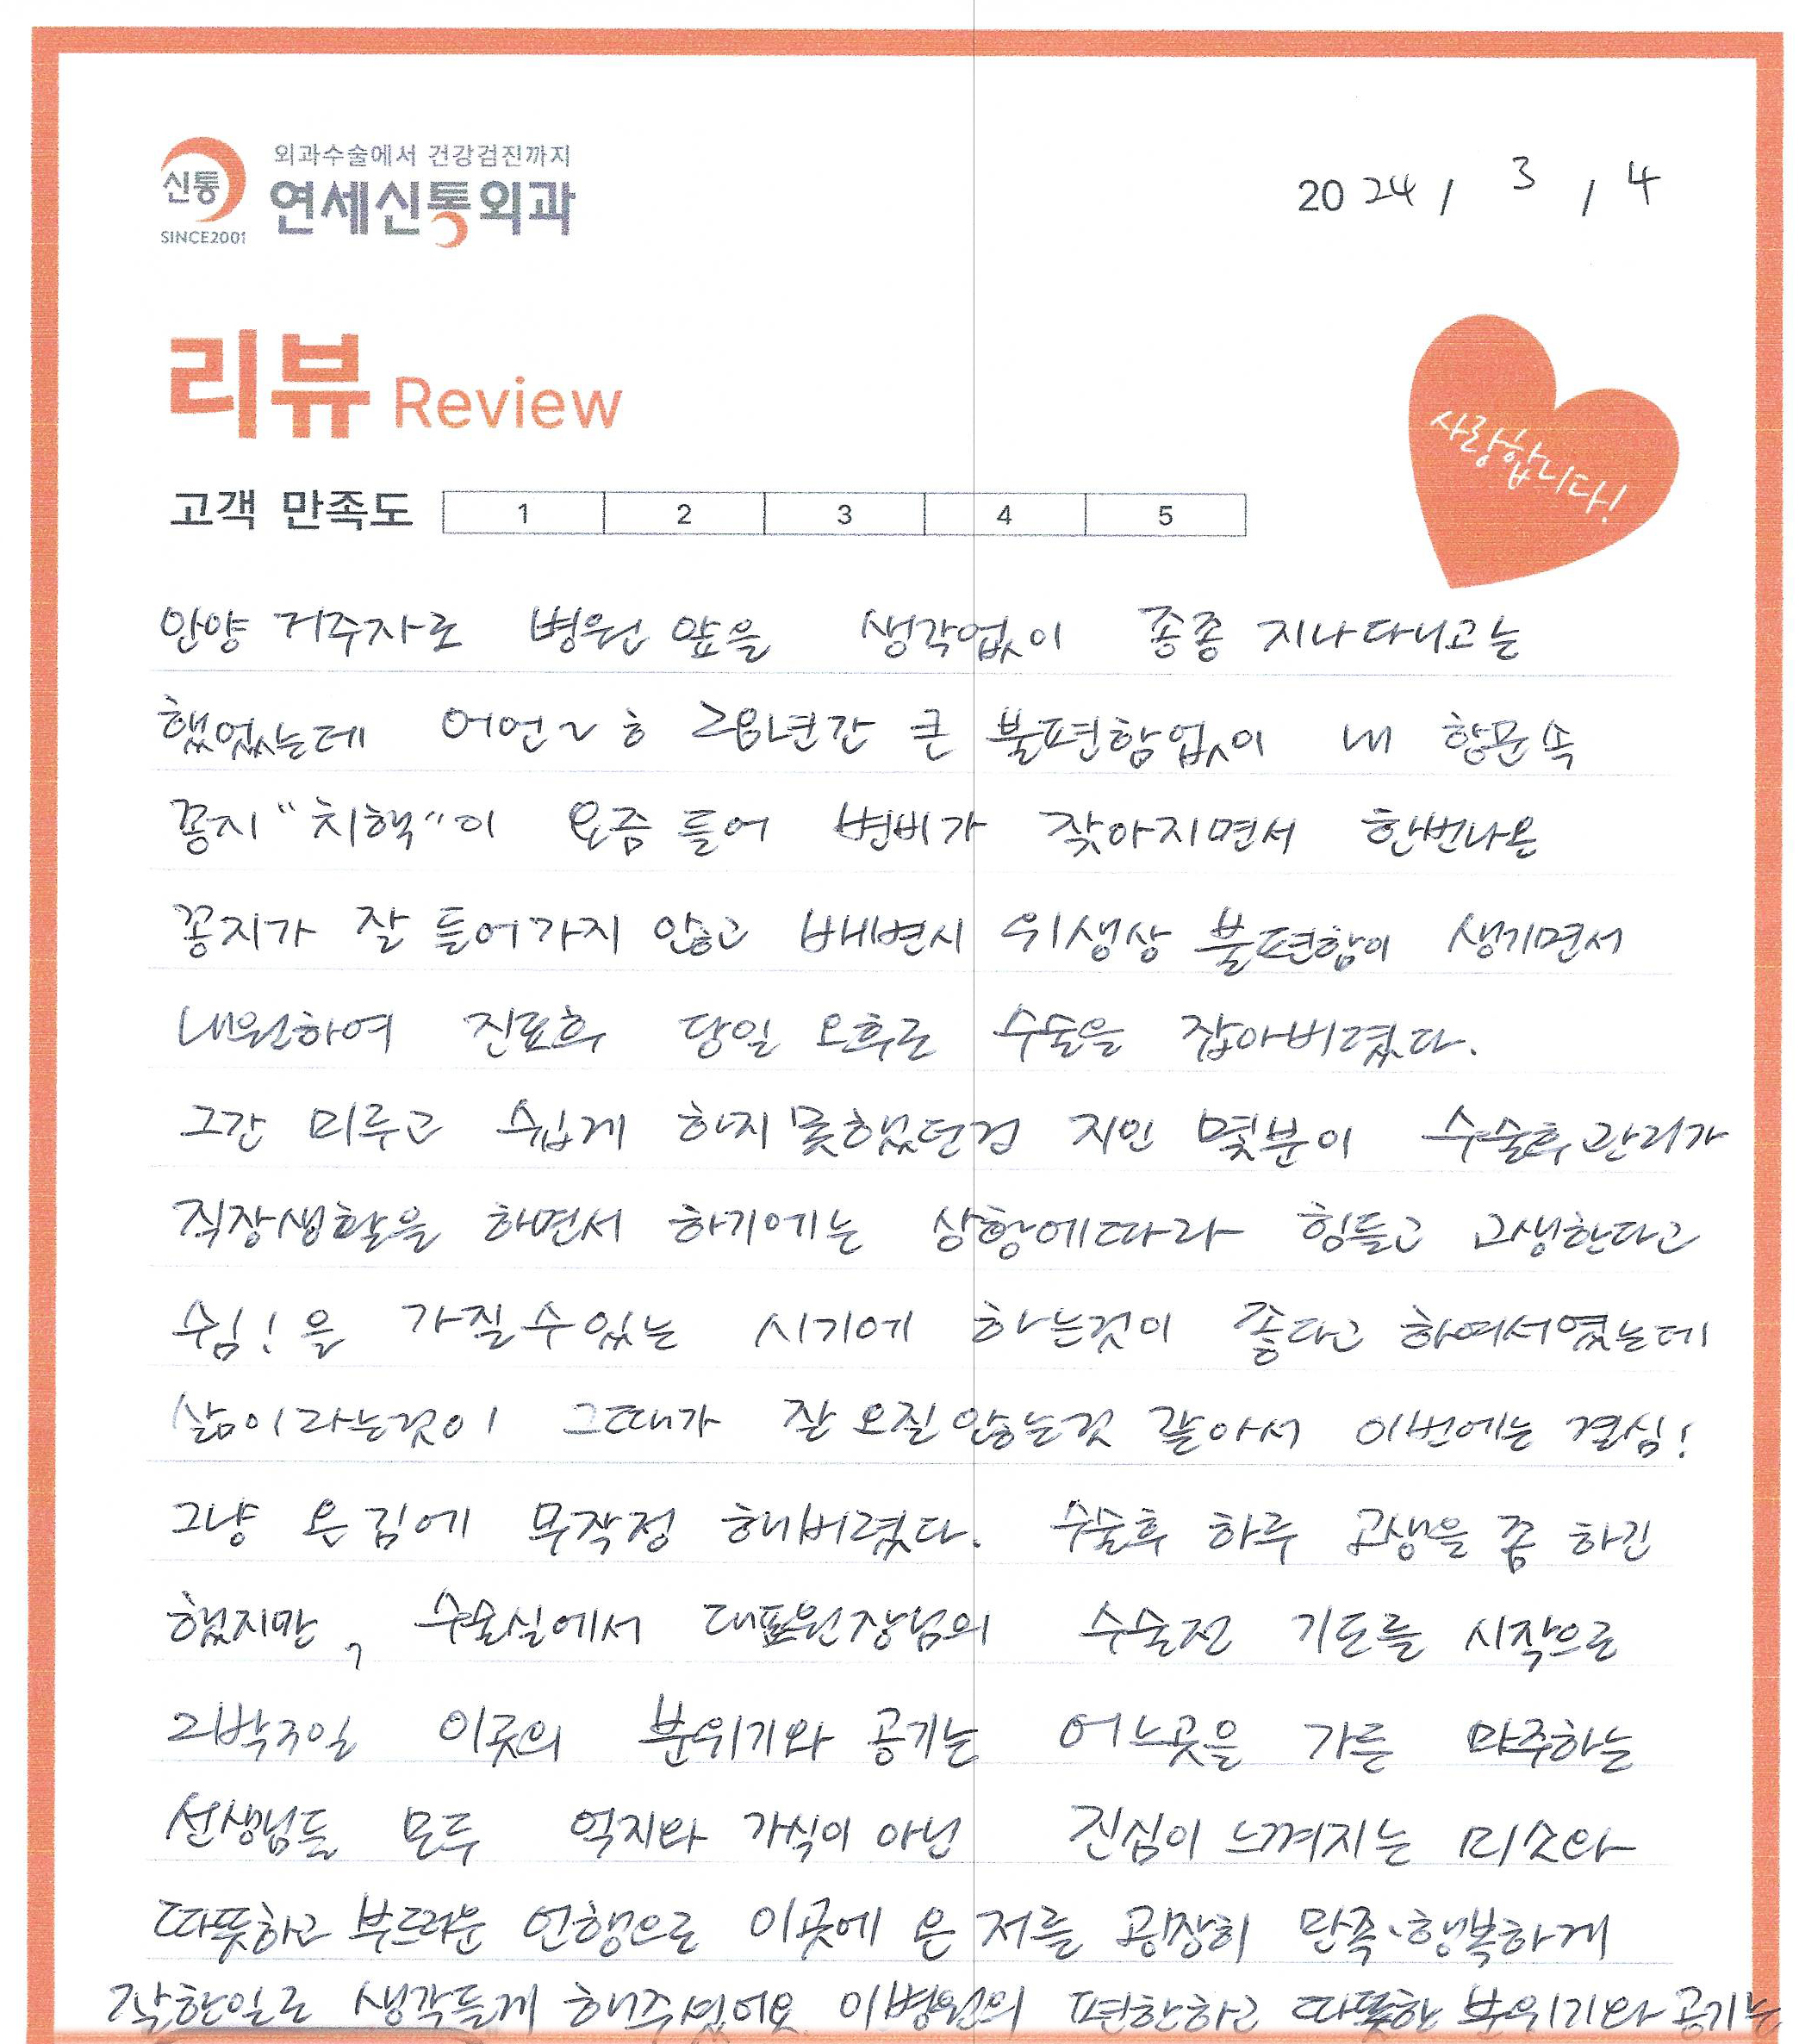 외과수술에서 건강검진까지
신통 연세신통외과
SINCE2001
2024 / 3 / 4
리뷰 Review
사랑합니다!
고객 만족도 1 2 3 4 5
안양 거주자로 병원 앞을 생각없이 종종 지나다니고는
했었는데 어언~ㅎ 28년간 큰 불편함없이 내 항문속
꽁지 "치핵"이 요즘 들어 변비가 잦아지면서 한번나온
꽁지가 잘 들어가지 않고 배변시 위생상 불편함이 생기면서
내원하여 진료후 당일 오후로 수술을 잡아버렸다.
그간 미루고 쉽게 하지 못했던건 지인 몇분이 수술후 관리가
직장생활을 하면서 하기에는 상황에따라 힘들고 고생한다고
쉼! 을 가질수있는 시기에 하는것이 좋다고 하여서였는데
삶이라는것이 그때가 잘 오질 않는것 같아서 이번에는 결심!
그냥 온김에 무작정 해버렸다. 수술후 하루 고생을 좀 하긴
했지만, 수술실에서 대표원장님의 수술전 기도를 시작으로
2박3일 이곳의 분위기와 공기는 어느곳을 가든 마주하는
선생님들 모두 억지와 가식이 아닌 진심이 느껴지는 미소와
따뜻하고 부드러운 언행으로 이곳에 온 저를 굉장히 만족、행복하게
잘한일로 생각들게 해주셨어요 이병원의 편한하고 따뜻한 분위기와 공기는